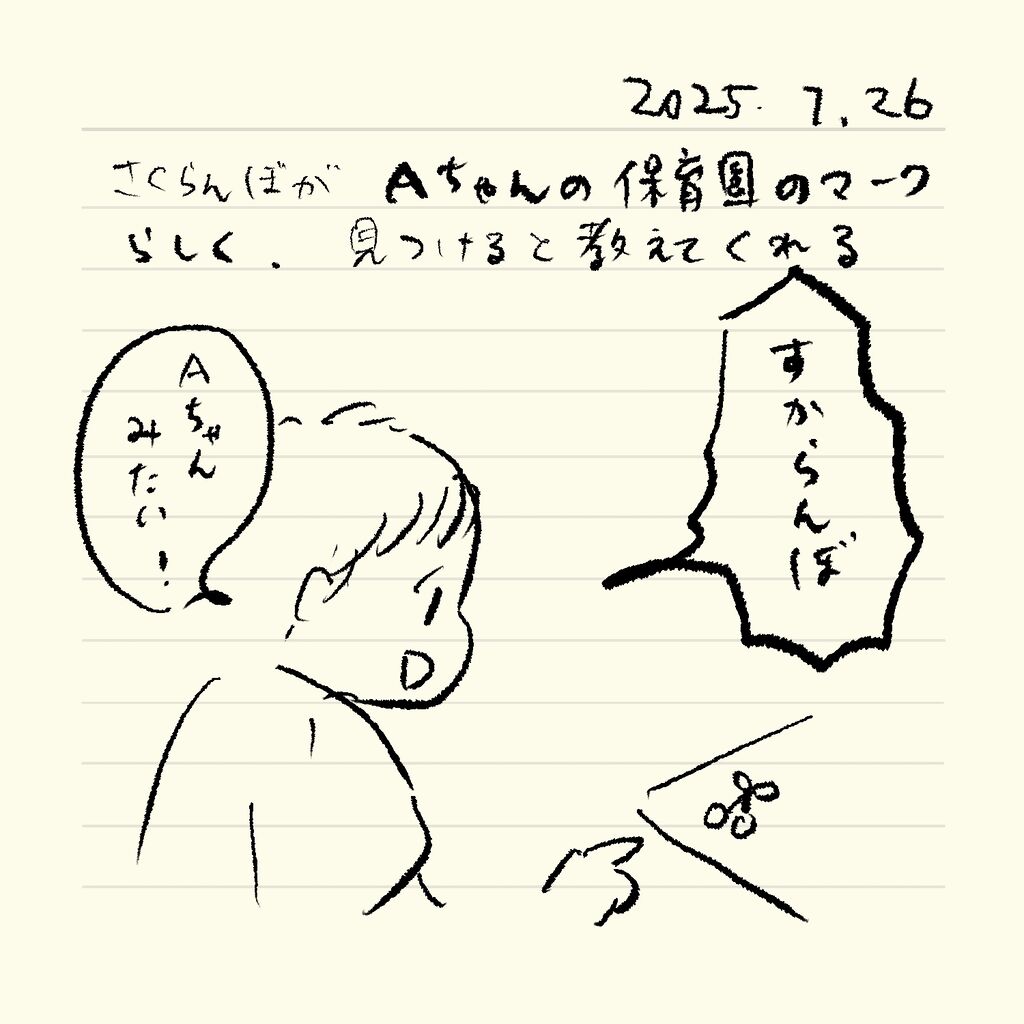 2025. 7.26
さくらんぼが Aちゃんの保育園のマーク
らしく. 見つけると教えてくれる
すからんぼ
Aちゃん
みたい!